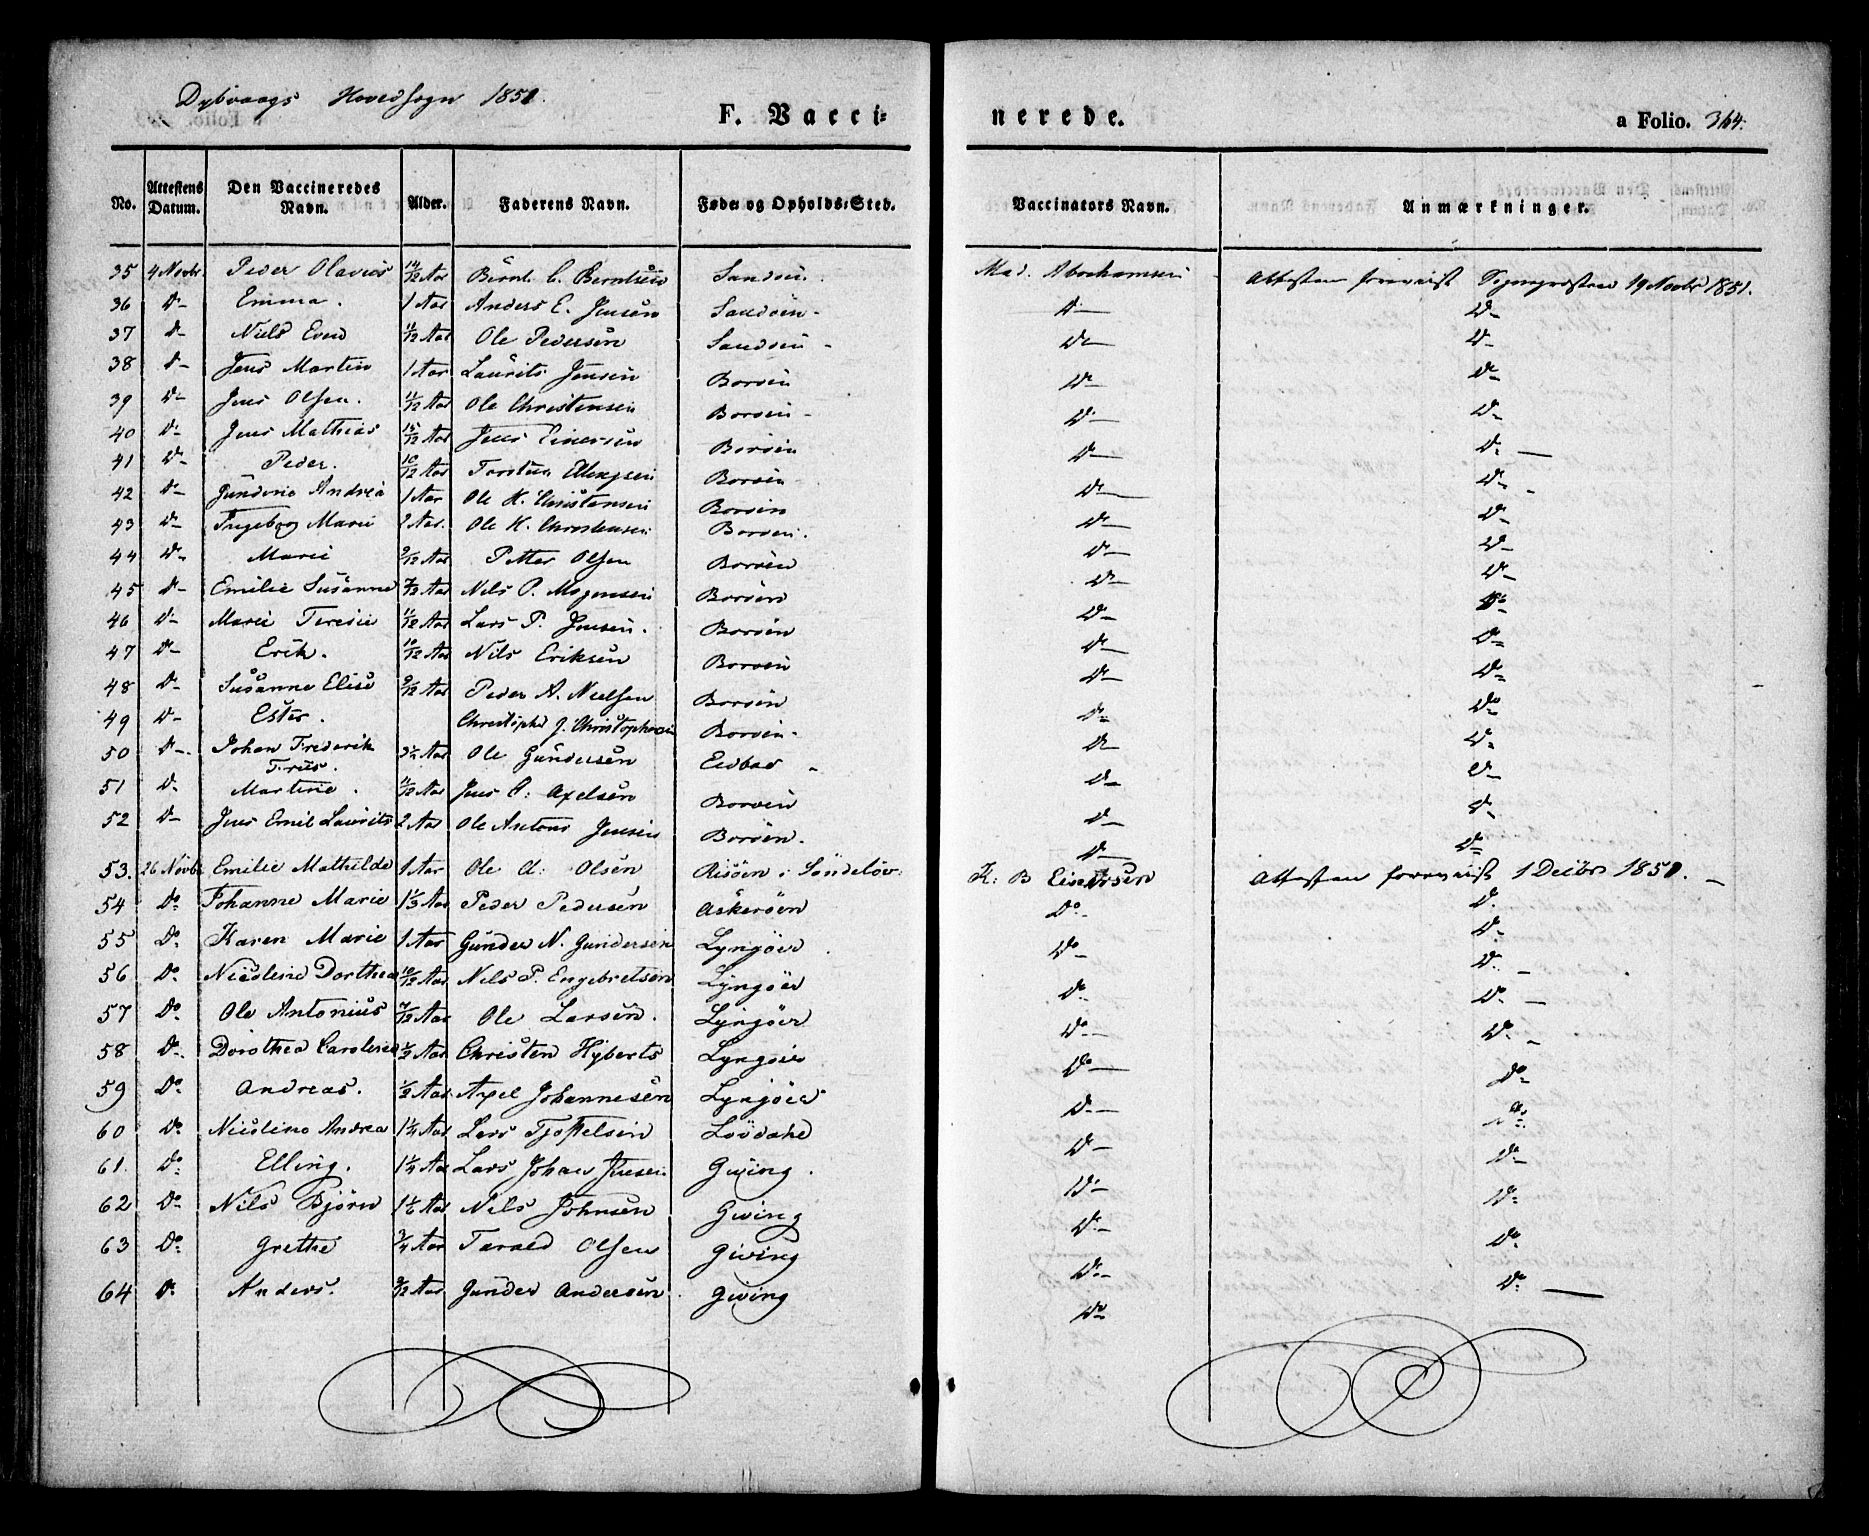 Dybvaags Hovedsogn 1851.
F. Vaccinerede. a Folio. 364.
No. Attestens Datum. Den Vaccineredes Navn. Alder. Faderens Navn. Føde- og Opholds-Sted. Vaccinators Navn. Anmærkninger.
35 4 Novbr. Peder Olavus 14/12 Aar Bernt C. Berntsen Sandøen. Mad. Abrahamsen Attesten foreviist 19 Novbr 1851.
36 D- Emma. 1 Aar Anders E. Jensen Sandøen- D- D-
37 D- Niels Evend 11/12 Aar Ole Pedersen Sandøen- D- D-
38 D- Jens Martin 1 Aar Laurits Jensen Borøen D- D-
39 D- Jens Olsen. 11/12 Aar Ole Christensen Borøen- D- D-
40 D- Jens Mathias 15/12 Aar Jens Einersen Borøen D- D-
41 D- Peder. 10/12 Aar Torsten Ellingsen Borøen- D- D-
42 D- Gundine Andrea 1 Aar Ole K. Christensen Borøen D- D-
43 D- Ingeborg Marie 2 Aar. Ole K. Christensen Borøen. D- D-
44 D- Marie 9/12 Aar Petter Olsen Borøen D- D-
45 D- Emilie Susanne Aar Nils P. Mogensen Borøen D- D-
46 D- Marie Teresie 11/12 Aar Lars P. Jensen. Borøen D- D-
47 D- Erik. 10/12 Aar Nils Eriksen Borøen D- D-
48 D- Susanne Elise 9/12 Aar Peder A. Nielsen Borøen D- D-
49 D- Ester. Christopher J. Christophersen Borøen- D- Do
50 D- Johan Frederik Friis. 3½ Aar Ole Gundersen Eidbo- D- D-
51 D- Martine. 11/12 Aar Jens C. Axelsen Borøen D- D-
52 D- Jens Emil Laurits 2 Aar Ole Anton Jensen Borøen. D- D-
53. 26 Novbr Emilie Mathilde 1 Aar Ole A: Olsen Risøen i Søndeløv. K: B Einersen Attesten foreviist 1 Decbr 1851.-
54 Do Johanne Marie 1½ Aar Peder Pedersen Askerøen Do- D.
55 Do. Karen Marie 1 Aar Gunder N. Gundersen Lyngøer. Do- D-
56 Do. Nicoline Dorthea 10/12 Aar Nels P. Engebretsen Lyngøer Do. D. -
57 Do. Ole Antonius 7/12 Aar Ole Larsen. Lyngøer Do- Do. -
58 Do. Dorothea Caroline ½ Aar Christen Hyberts Lyngøer Do- Do. -
59 Do- Andreas. ½ Aar Axel Johannesen Lyngøer D- Do-
60 Do Nicoline Andrea 1¼ Aar Lars Tjostelsen Lovdahl D- Do.
61. Do- Elling. 1¼ Aar Lars Johan Jensen Gwing. D- Do-
62 Do- Nils Bjørn 1½ Aar Nils Johnsen Gwing D- Do-
63 Do. Grethe ¾ Aar Tarald Olsen Gwing Do- Do.
64 Do Anders. 9/12 Aar Gunder Andersen. Gwing Do- Do.